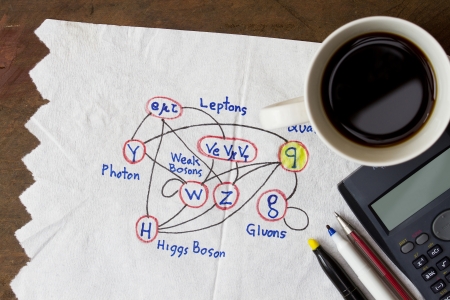 eμτ
Leptons
νe νμ ντ
Qua
γ
q
Weak
Bosons
Photon
W
Z
g
H
Gluons
Higgs Boson